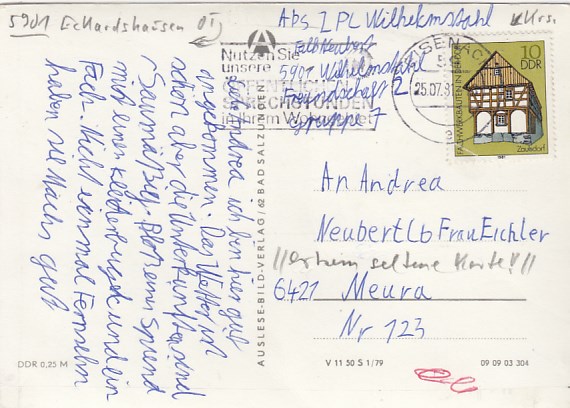 5901 Eckardtshausen OT
Abs I PL Wilhelmsthal
Falk Neubert
5901 Wilhelmsthal
Freundschaft 2
Gruppe 7
Nutzen Sie
unsere
ÖFFENTLICHEN
SPRECHSTUNDEN
in Ihrem Wohngebiet
EISENACH
25.07.8
10
DDR
FACHWERKBAUTEN IN DER DDR
Zaulsdorf
1981
Andrea ich bin hier gut
angekommen. Das Wetter ist
schön aber die Unterkünfte sind
Saumäßig. Bloß ein Spiend
mit einen Kleiderbügel und ein
Fach. Nicht einmal Fernsehn
haben sie Machs gut
AUSLESE-BILD-VERLAG / 62 BAD SALZUNGEN
An Andrea
Neubert Cb Frau Eichler
seltene Karte!!
6421 Meura
Nr 123
DDR 0,25 M
V 11 50 S 1/79
09 09 03 304